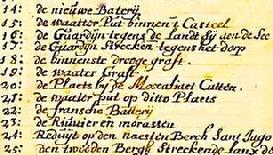 14: de nieuwe Baterij
15: de waatter Put binnen 't Casteel
16: de Guardijn tegens de Landt Sij aen de See
17: de Guardijn Strecken tegens het dorp
18: de binnenste drooge graft.
19: de waater Graft
20: de Plaets bij de Calven
21: de waater put op ditto Plaets
22: de fransche Batterij
23: de Ruwieren morassen
24: Reduijt op den naesten Berch Sant Jago
25: den twedden Bergh Streckende